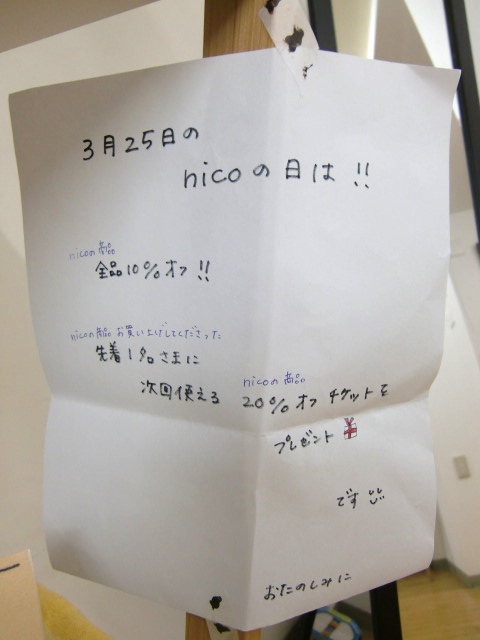 3月25日の
nicoの日は!!
nicoの商品
全品10%オフ!!
nicoの商品お買い上げしてくださった
先着1名さまに
nicoの商品
次回使える 20%オフチケットを
プレゼント
です
おたのしみに